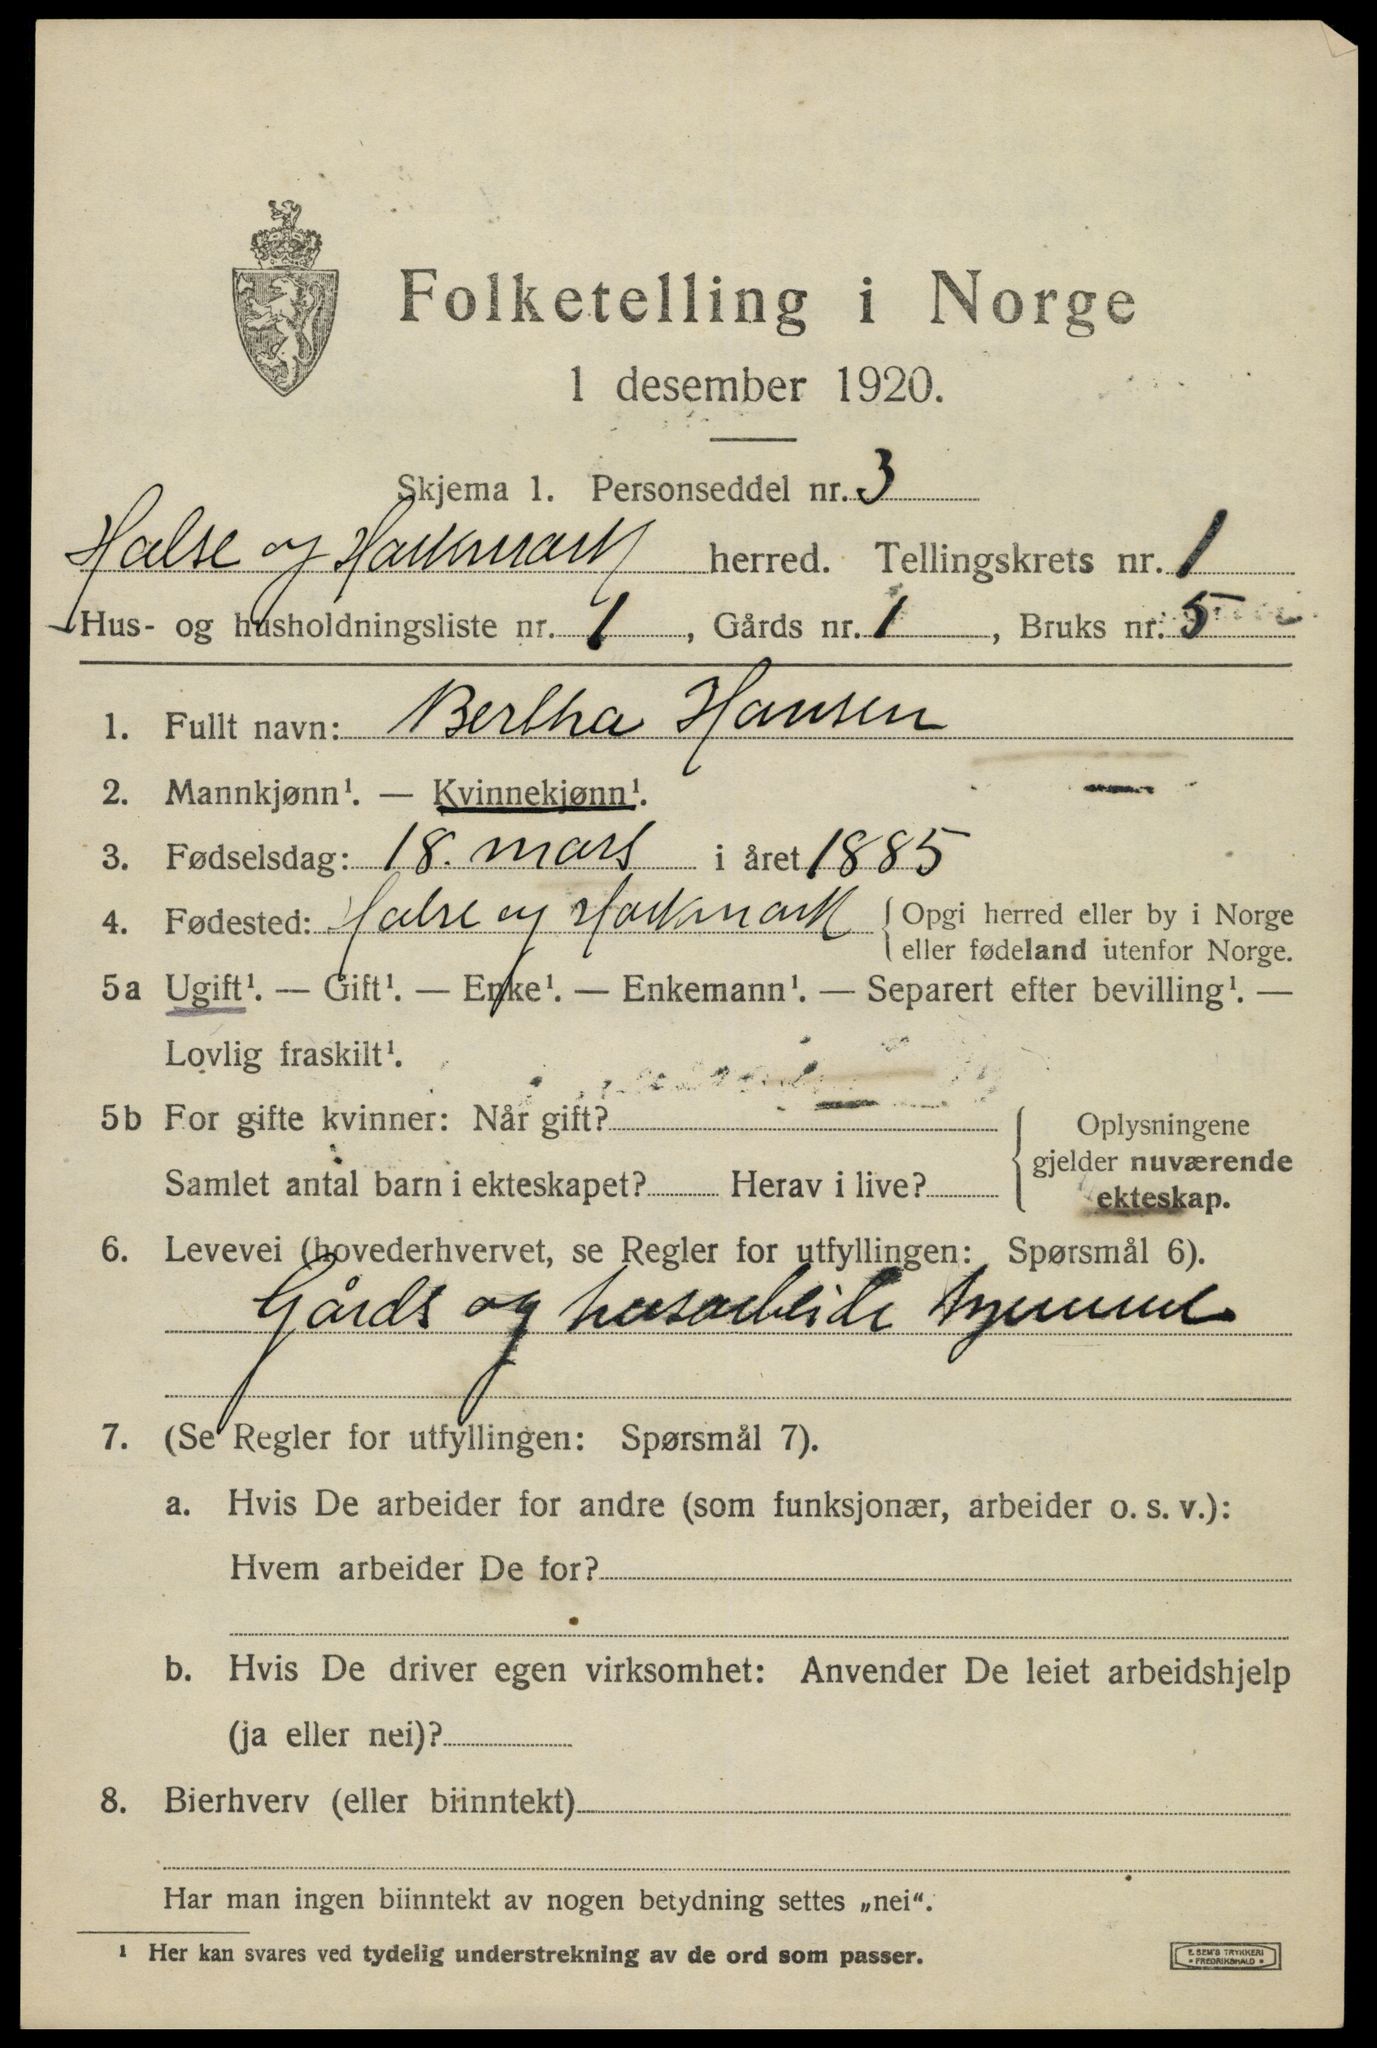 Folketelling i Norge
1 desember 1920.
Skjema 1. Personseddel nr. 3
Halse og Harkmark herred. Tellingskrets nr. 1
Hus- og husholdningsliste nr. 1, Gårds nr. 1, Bruks nr. 5
1. Fullt navn: Bertha Hansen
2. Mannkjønn¹. — Kvinnekjønn¹.
3. Fødselsdag: 18. mars i året 1885
4. Fødested: Halse og Harkmark { Opgi herred eller by i Norge
eller fødeland utenfor Norge.
5a Ugift¹. — Gift¹. — Enke¹. — Enkemann¹. — Separert efter bevilling¹. —
Lovlig fraskilt¹.
5b For gifte kvinner: Når gift?
Samlet antal barn i ekteskapet? Herav i live?
{ Oplysningene
gjelder nuværende
ekteskap.
6. Levevei (hovederhvervet, se Regler for utfyllingen: Spørsmål 6).
Gårds og husarbeide hjemme
7. (Se Regler for utfyllingen: Spørsmål 7).
a. Hvis De arbeider for andre (som funksjonær, arbeider o. s. v.):
Hvem arbeider De for?
b. Hvis De driver egen virksomhet: Anvender De leiet arbeidshjelp
(ja eller nei)?
8. Bierhverv (eller biinntekt)
Har man ingen biinntekt av nogen betydning settes „nei“.
¹ Her kan svares ved tydelig understrekning av de ord som passer.
E. SEM'S TRYKKERI
• FREDRIKSHALD •